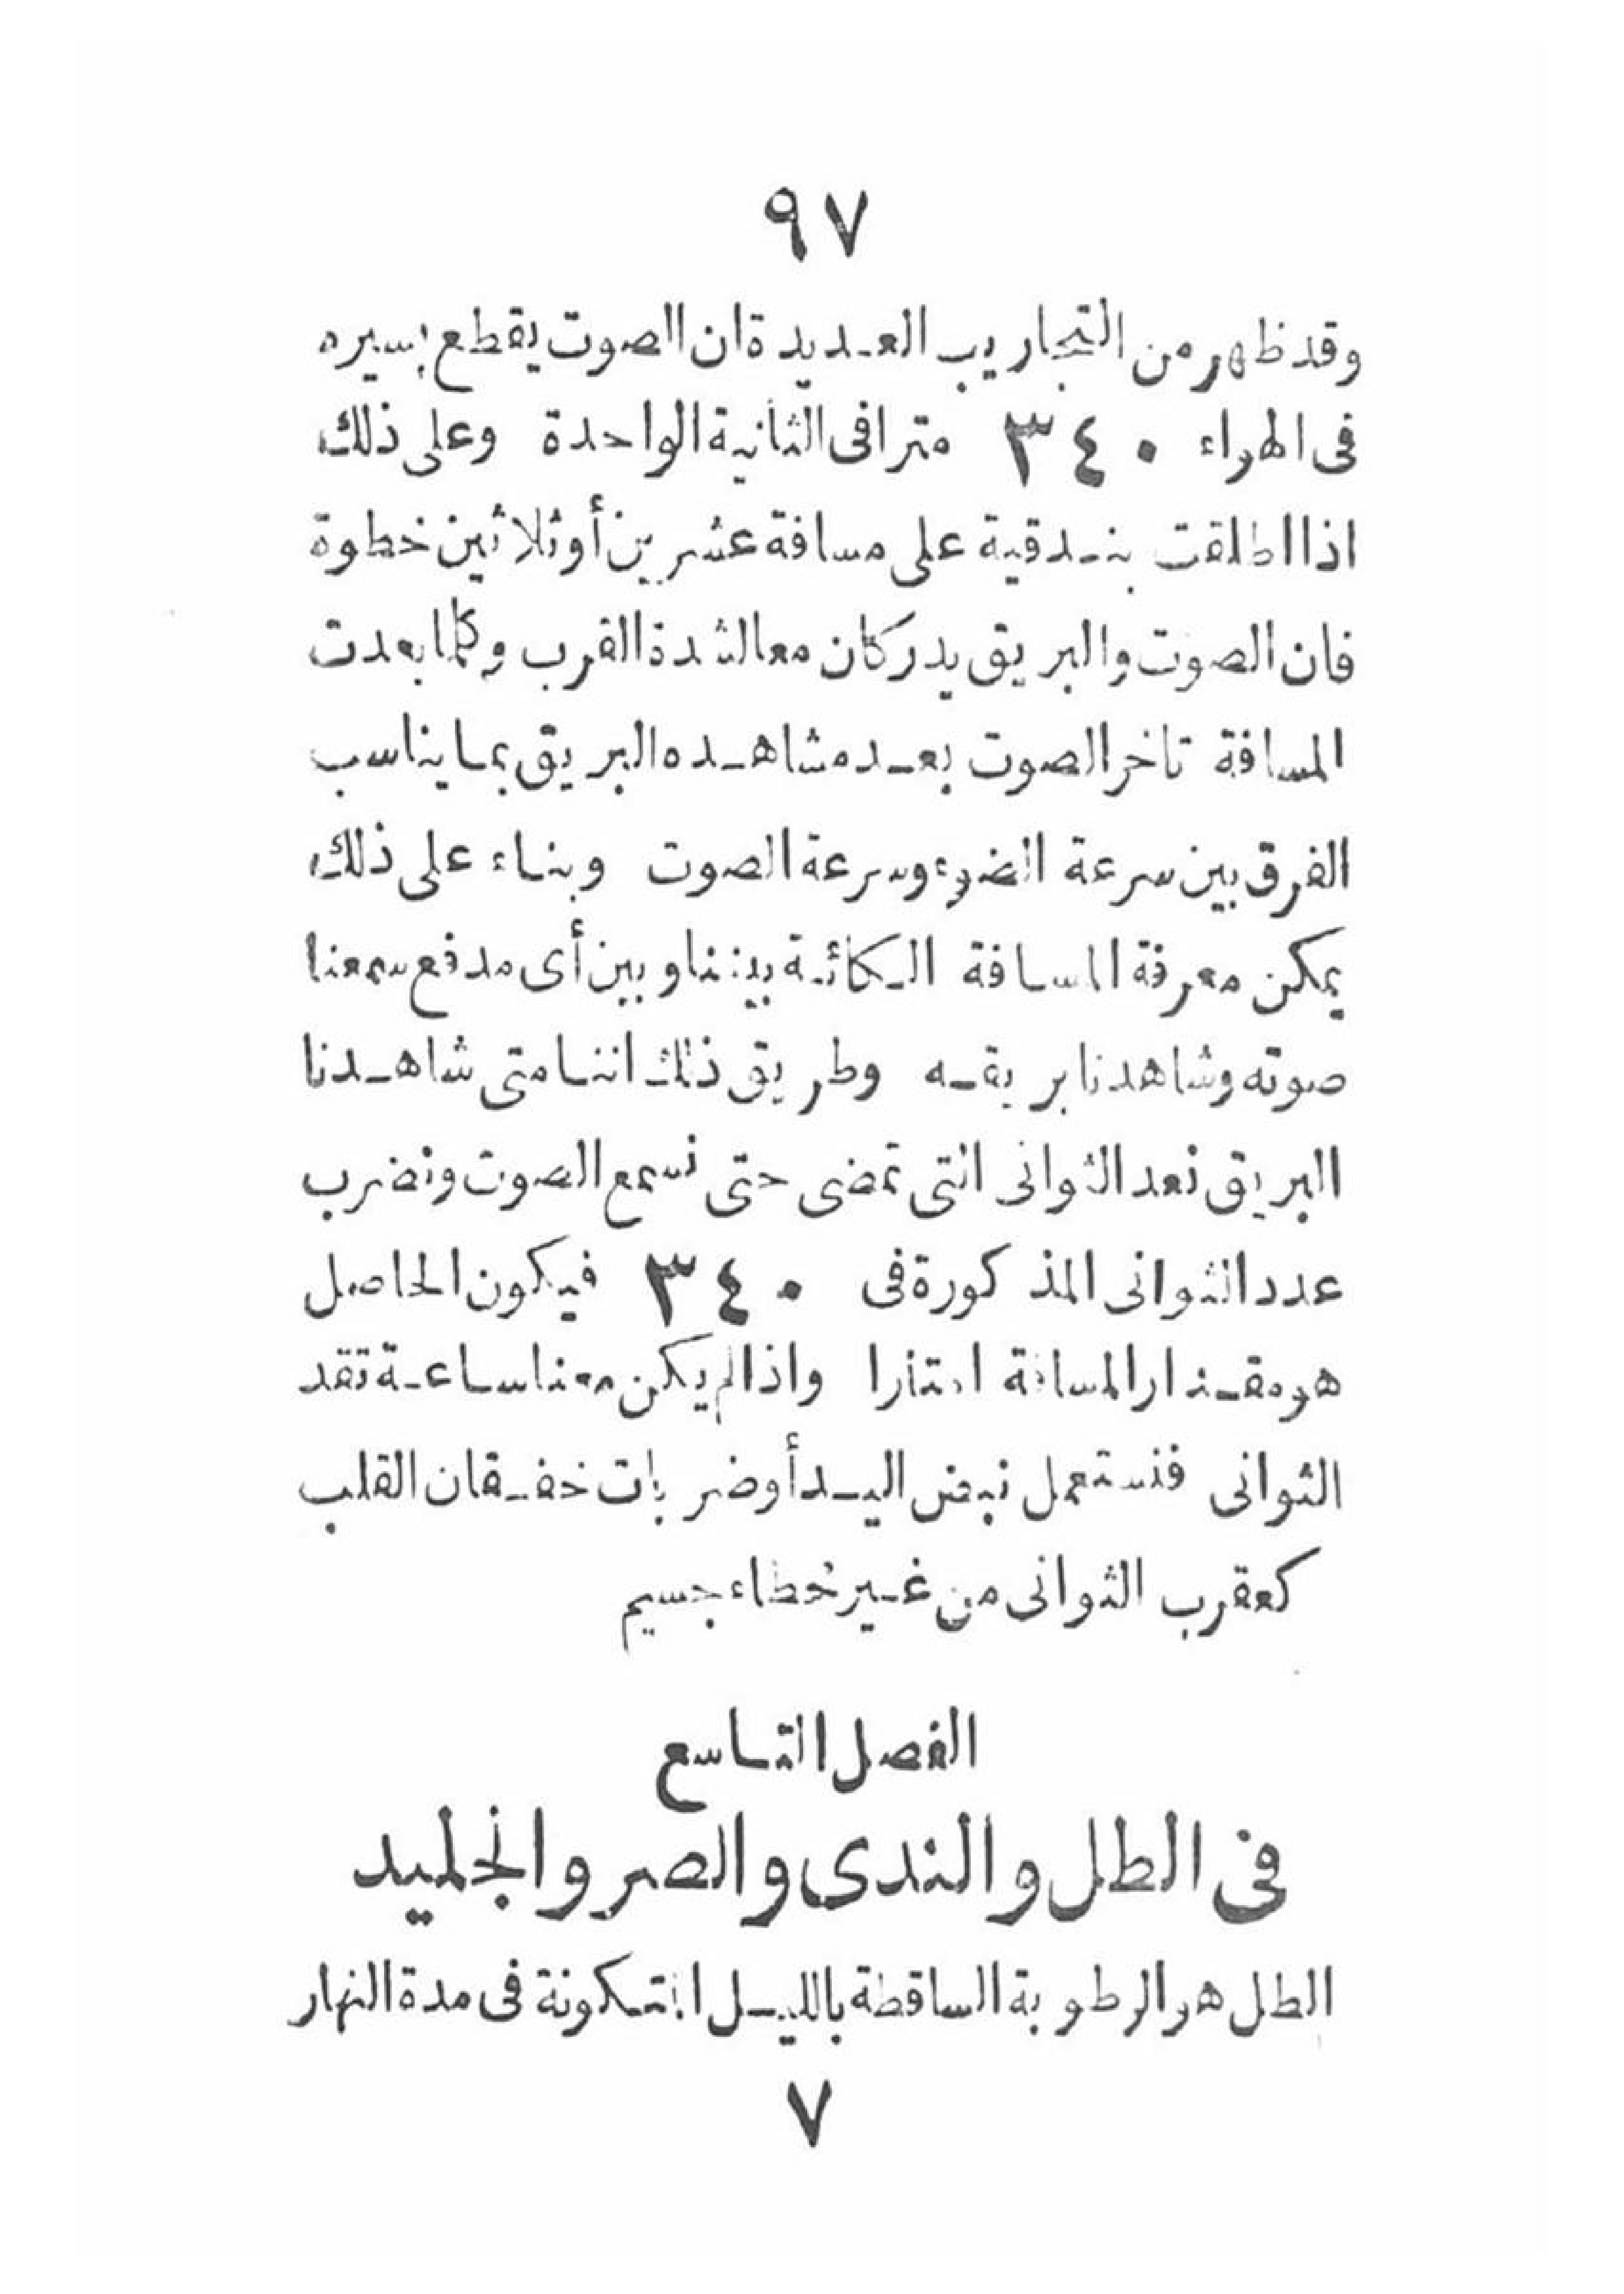 ٩٧
وقد ظهر من التجاريب العديدة ان الصوت يقطع بسيره
فى الهواء ٣٤٠ مترا فى الثانية الواحدة وعلى ذلك
اذا اطلقت بندقية على مسافة عشرين أو ثلاثين خطوة
فان الصوت والبريق يدركان معا لشدة القرب وكلما بعدت
المسافة تاخر الصوت بعد مشاهده البريق بما يناسب
الفرق بين سرعة الضوء وسرعة الصوت وبناء على ذلك
يمكن معرفة المسافة الكائنة بيننا وبين أى مدفع سمعنا
صوته وشاهدنا بريقه وطريق ذلك اننا متى شاهدنا
البريق نعد الثوانى التى تمضى حتى نسمع الصوت ونضرب
عدد الثوانى المذكورة فى ٣٤٠ فيكون الحاصل
هو مقدار المسافة امتارا واذا لم يكن معنا ساعة تقد
الثوانى فنستعمل نبض اليد أو ضربات خفقان القلب
كعقرب الثوانى من غير خطاء جسيم
الفصل التاسع
فى الطل والندى والصر والجليد
الطل هو الرطوبة الساقطة بالليل المتكونة فى مدة النهار
٧